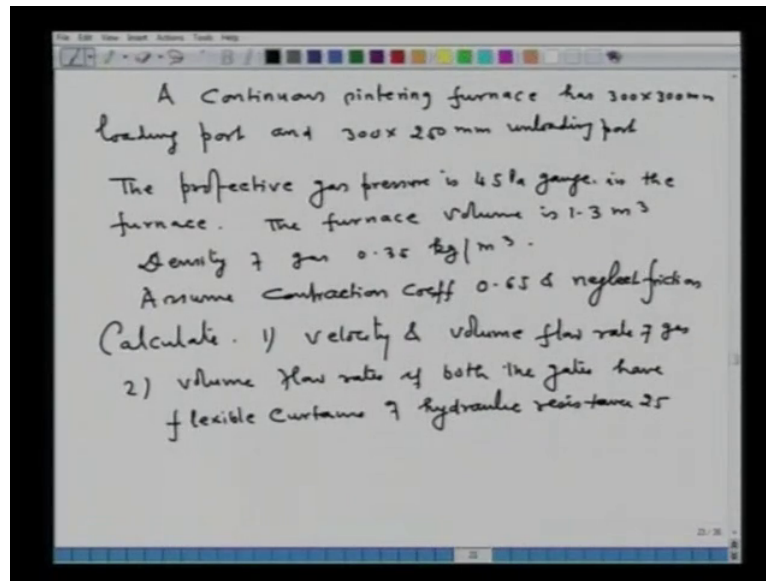 File Edit View Insert Actions Tools Help
A Continuous sintering furnace has 300x300mm
loading port and 300x250 mm unloading port
The protective gas pressure is 45 Pa gauge. in the
furnace. The furnace volume is 1.3 m³
Density of gas 0.35 kg/m³.
Assume contraction coeff 0.65 & neglect friction
Calculate. 1) velocity & volume flow rate of gas
2) volume flow rates if both the gates have
flexible curtains of hydraulic resistance 25